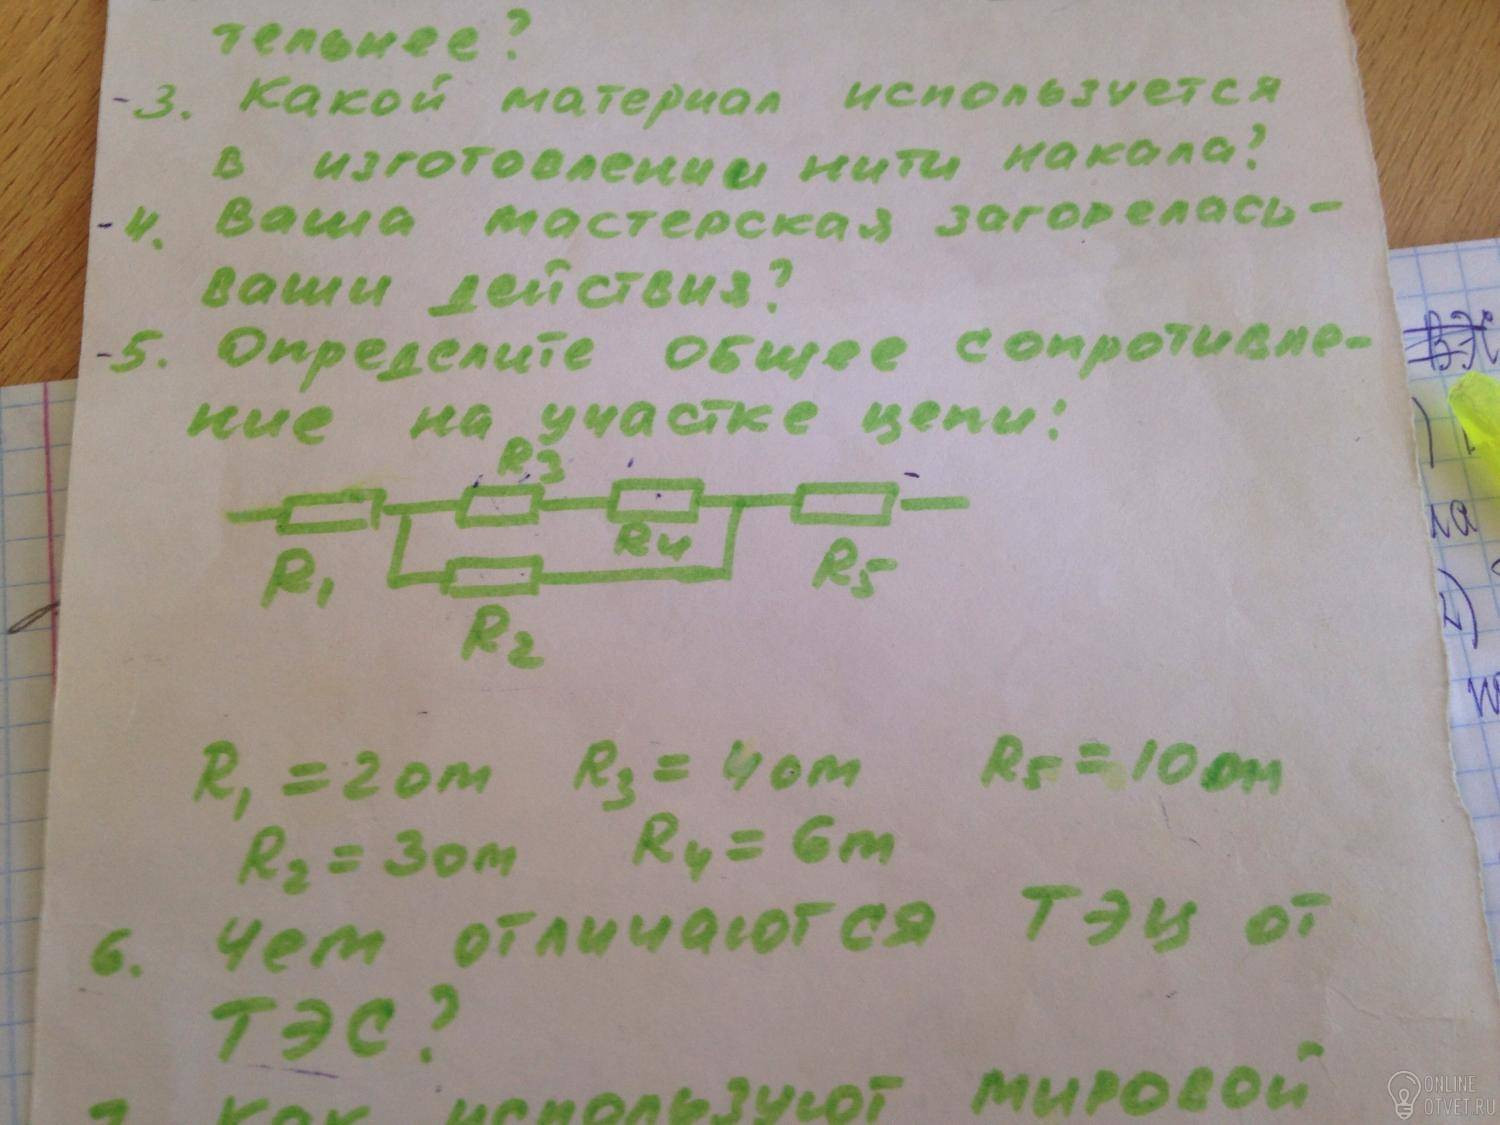 тельнее?
-3. Какой материал используется
в изготовлении нити накала?
-4. Ваша мастерская загорелась-
ваши действия?
-5. Определите общее сопротивле-
ние на участке цепи:
R3
R4
R1
R5
R2
R1=2ом R3=4ом R5=10ом
R2=3ом R4=6m
6. Чем отличаются ТЭЦ от
ТЭС?
7. Как используют мировой
ONLINE
OTVET.RU